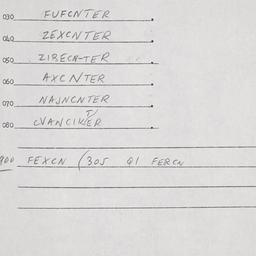 030 FUFCNTER
040 ZEXCNTER
050 ZIPECN-TER
060 AXCNTER
070 NAJNCNTER
080 CVANCIKER
900 FEXCN (305 Q1 FERCN